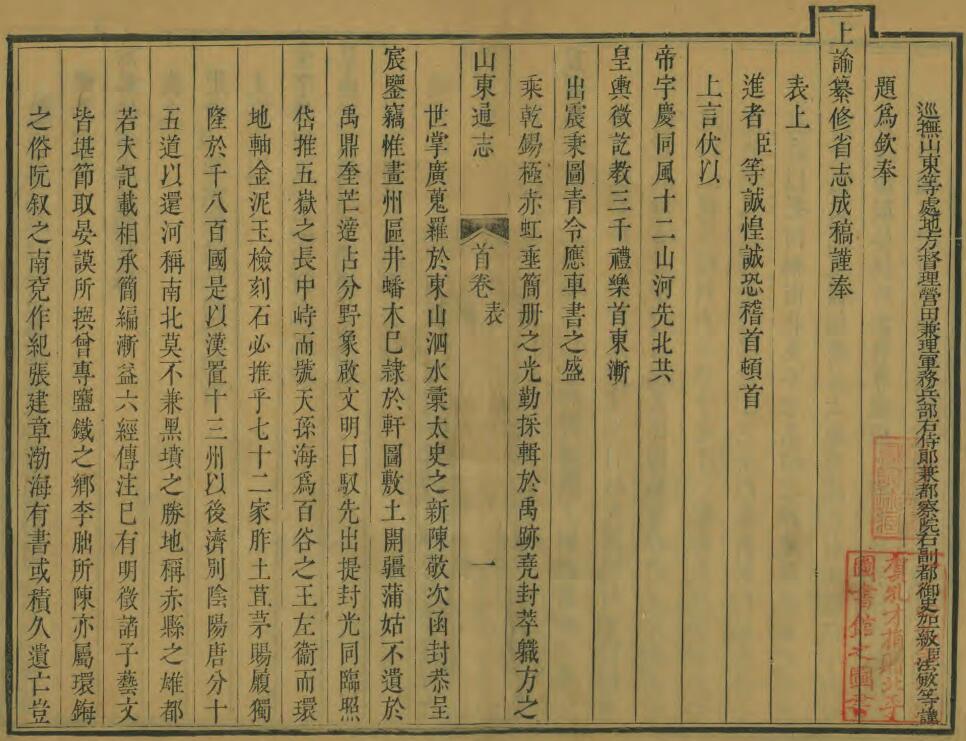 巡撫山東等處地方督理營田兼理軍務兵部右侍郎兼都察院右副都御史加級臣法敏等謹
題爲欽奉
上諭纂修省志成稿謹奉
表上
進者臣等誠惶誠恐稽首頓首
上言伏以
帝宇慶同風十二山河先北共
皇輿徵訖教三千禮樂首東漸
出震秉圖青令應車書之盛
乘乾錫極赤虹垂簡册之光勤採輯於禹跡堯封萃職方之
山東通志
首卷
表
一
世掌廣蒐羅於東山泗水彙太史之新陳敬次函封恭呈
宸鑒竊惟畫州區井蟠木巳隷於軒圖敷土開疆蒲姑不遺於
禹鼎奎芒達占分野象啟文明日馭先出提封光同臨照
岱推五嶽之長中峙而號天孫海爲百谷之王左衞而環
地軸金泥玉檢刻石必推乎七十二家胙土苴茅賜履獨
隆於千八百國是以漢置十三州以後濟別陰陽唐分十
五道以還河稱南北莫不兼黑墳之勝地稱赤縣之雄都
若夫記載相承簡編漸益六經傳注巳有明徵諸子藝文
皆堪節取晏謨所撰曾專鹽鐵之鄉李朏所陳亦屬環鋂
之俗阮叙之南兗作紀張建章渤海有書或積久遺亡豈
國書館之圖書